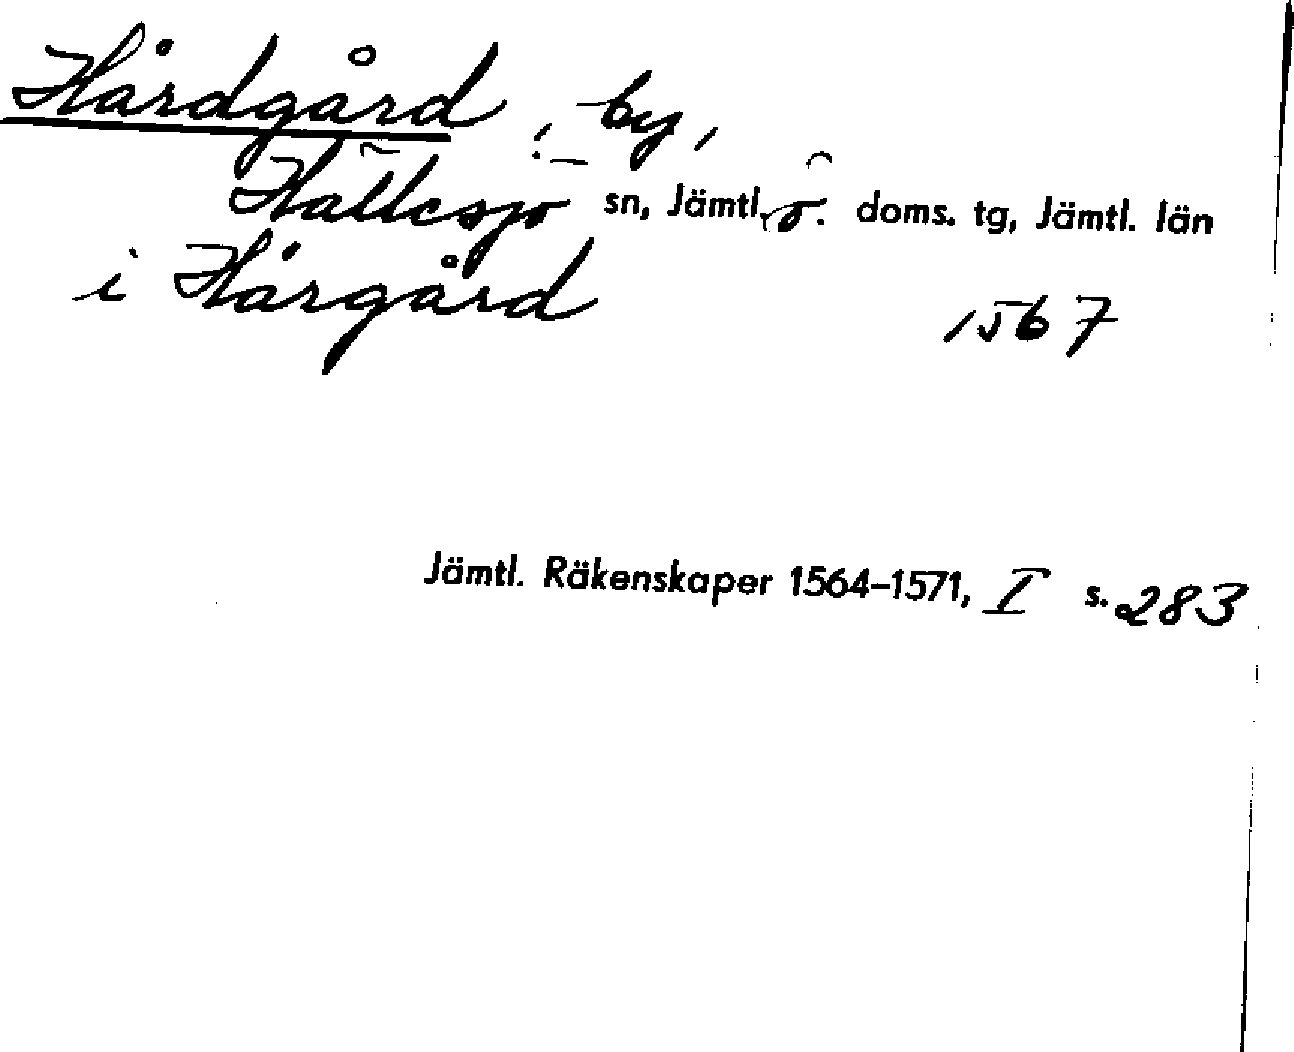 Hårdgård, by,
Hällesjö sn, Jämtl. ö. doms. tg, Jämtl. län
i Hårgård 1567
Jämtl. Räkenskaper 1564–1571, I s. 283